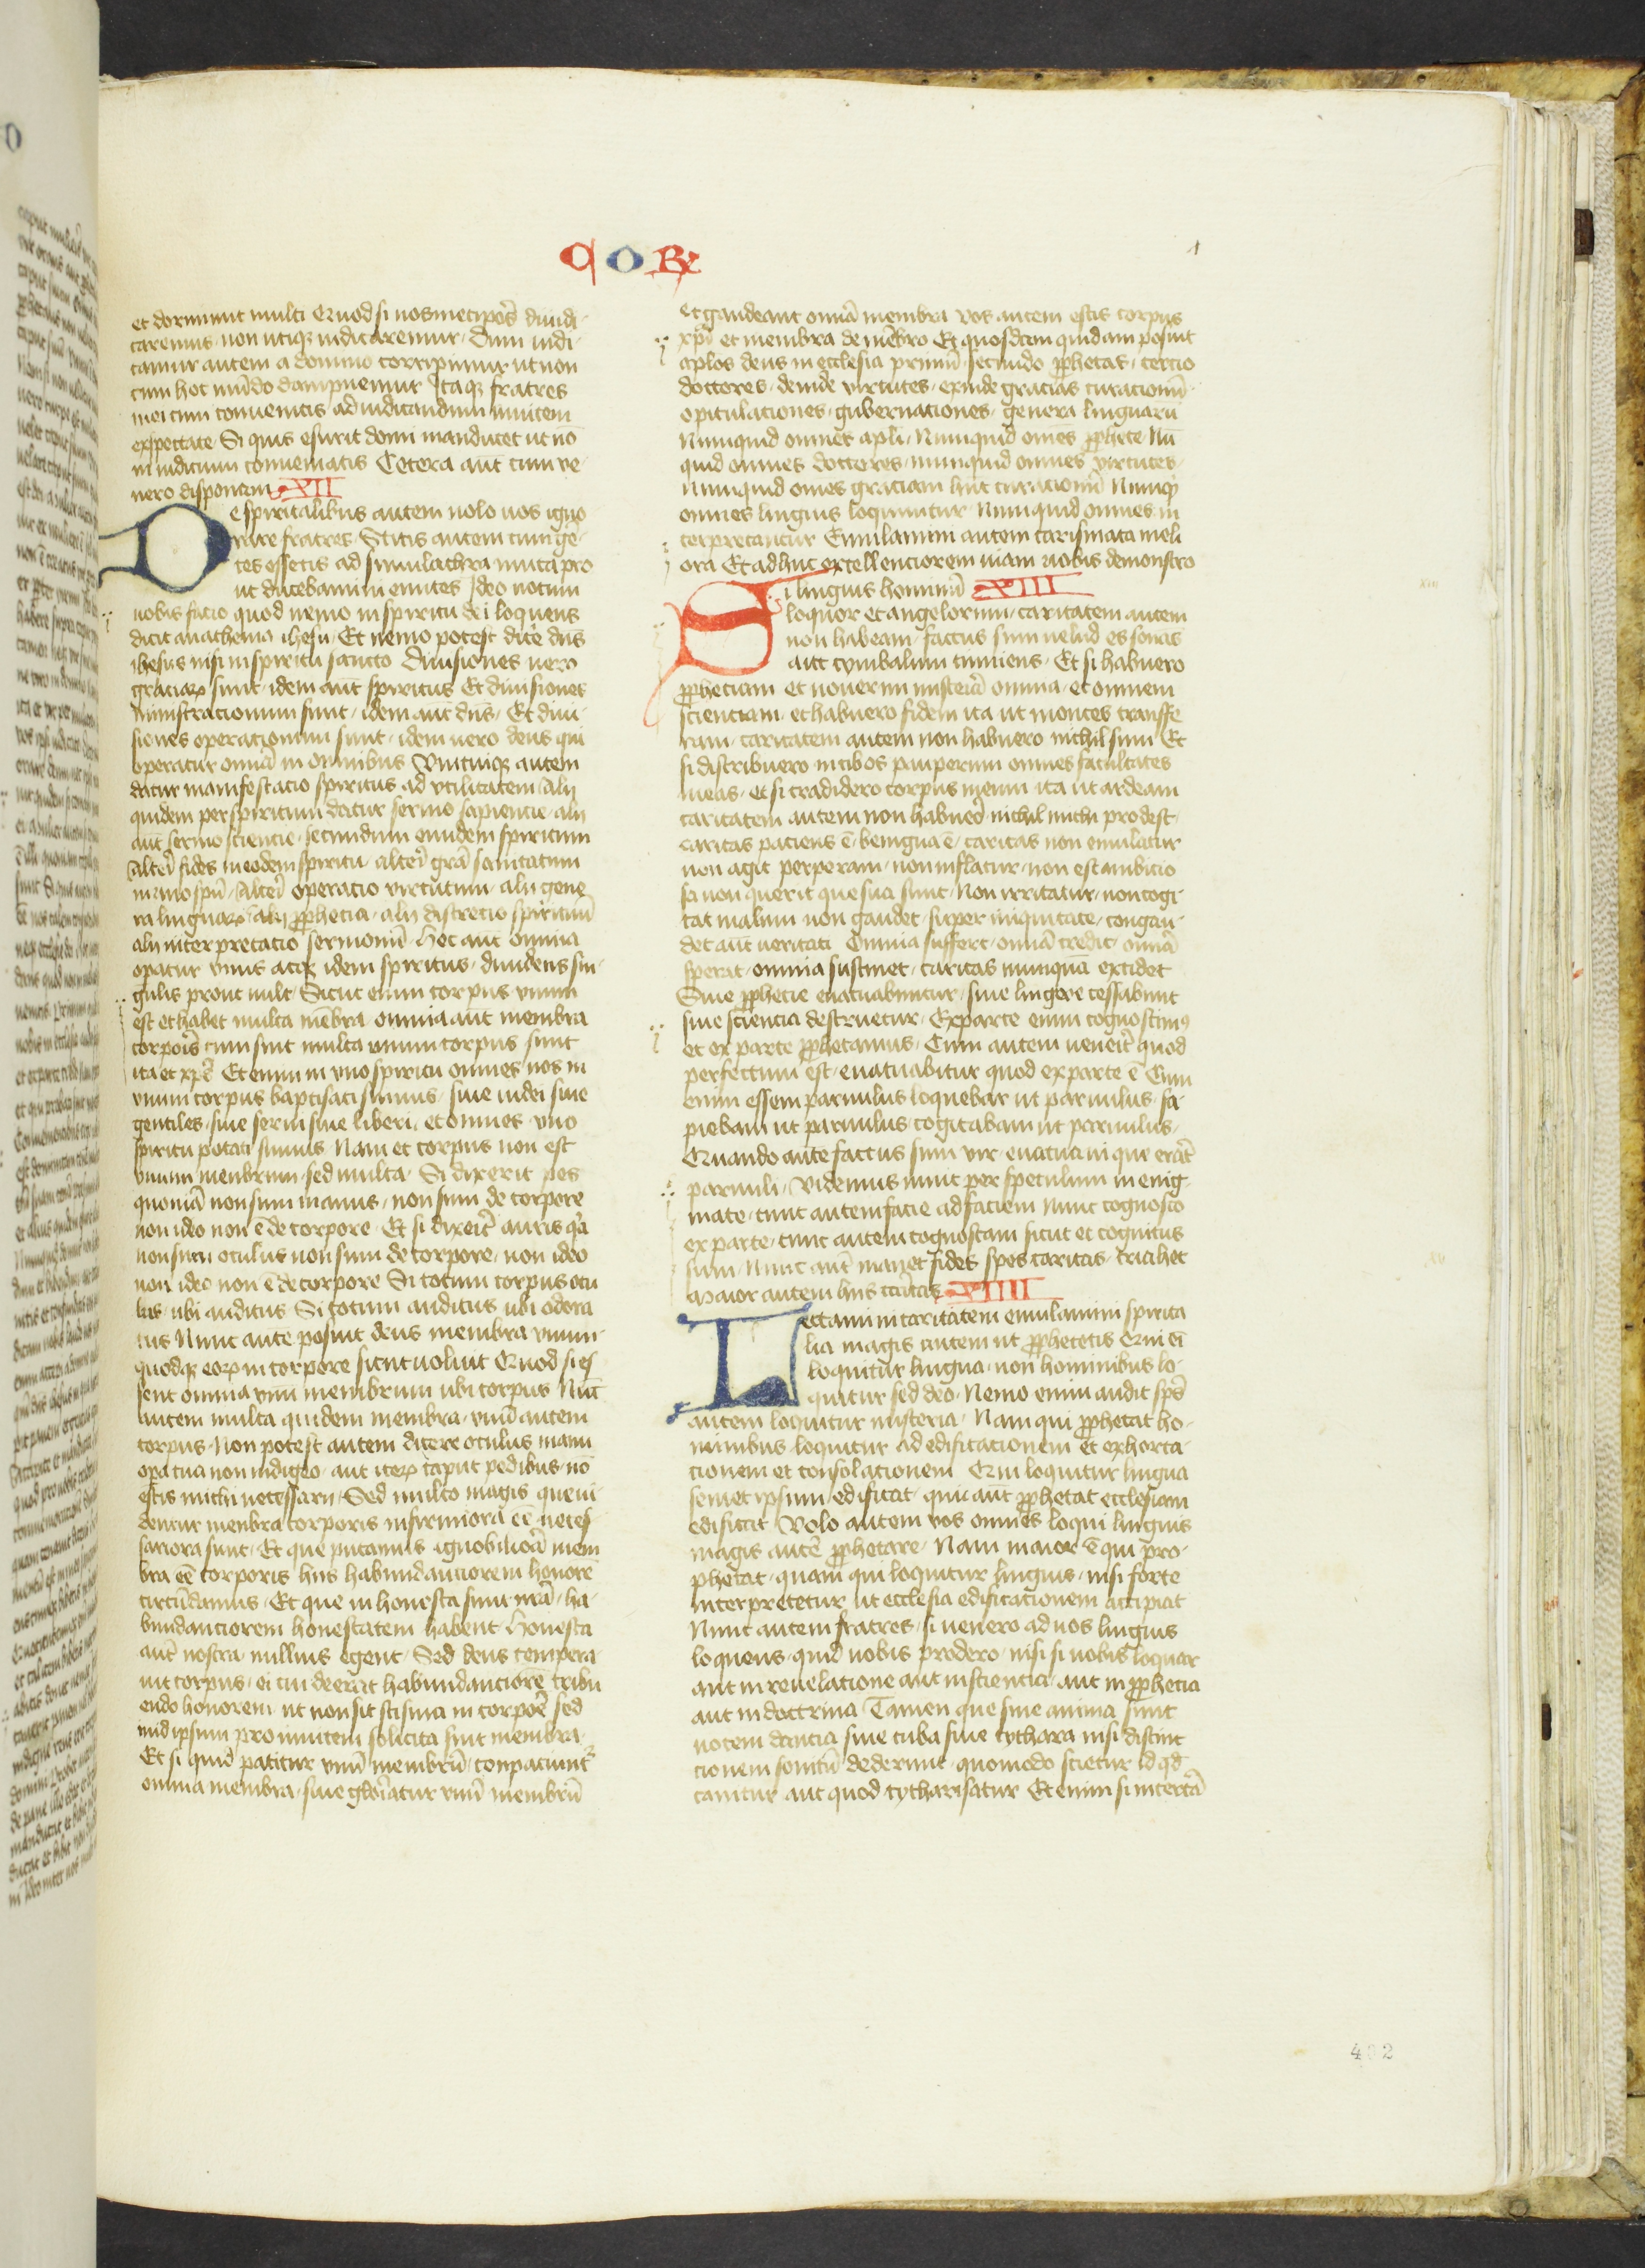 COR
1
et dormiunt multi Quod si nosmetipos̄ diiudi-
caremus non utiqꝫ iudicaremur Dum iudi-
camur autem a domino corripimur ut non
cum hoc mūdo dampnemur Itaqꝫ fratres
mei cum conuenitis ad iudicandum inuicem
exspectate Si quis esurit domi manducet ut nō
in iudicium conueniatis Cetera aūt cum ve-
nero disponam XII
De spiritalibus autem nolo uos igno
rare fratres Scitis autem cum gē-
tes essetis ad simulachra muta pro
ut ducebamini euntes Ideo notum
uobis facio quod nemo in spiritu dei loquens
dicit anathema ihesu Et nemo potest dicē dn̄s
ihesus nisi in spiritu sancto Diuisiones uero
graciaꝝ sunt idem aūt spiritus Et diuisiones
ministracionum sunt idem aūt dn̄s Et diui-
siones operationum sunt idem uero deus qui
operatur omīa in omnibus Vnicuiqꝫ autem
datur manifestacio spiritus ad vtilitatem Alij
quidem per spiritum datur sermo sapiencie alij
aūt sermo sciencie secundum eundem spiritum
Alteri fides in eodem spiritu alteri grā sanitatum
in vno spū Alteri operatio virtutum alij gene
ra linguaꝝ alij pphecia alij discrecio spirituū
alij interpretacio sermonū Hec aūt omnia
opatur vnus atqꝫ idem spiritus diuidens sin-
gulis prout uult Sicut enim corpus vnum
est et habet multa mēbra omnia aūt membra
corpois cum sint multa vnum corpus sunt
ita et xpc̄ Etenim in vno spiritu omnes nos in
vnum corpus baptisati sumus siue iudei siue
gentiles siue serui siue liberi et omnes vno
spiritu potati sumus Nam et corpus non est
vnum menbrum sed multa Si dixerit pes
quoniā non sum manus non sum de corpore
non ideo non ē de corpore Et si dixeit auris qa
non sum oculus non sum de corpore non ideo
non ideo non ē de corpore Si totum corpus ocu
lus ubi auditus Si totum auditus ubi odora
tus Nunc aute posuit deus membra vnum-
quodqꝫ eoꝝ in corpore sicut uoluit Quod si es
sent omnia vnū membrum ubi corpus Nūc
autem multa quidem membra vnū autem
corpus Non potest autem dicere oculus manu
opa tua non indigeo aut iteꝝ caput pedibus nō
estis michi necessarij Sed multo magis que ui-
dentur menbra corporis infirmiora eē neces-
sariora sunt Et que putamus ignobiliora mem
bra eē corporis hijs habundanciorem honorē
circūdamus Et que inhonesta sunt nrā ha-
bundanciorem honestatem habent Honesta
aūt nostra nullius egent Sed deus tempera-
uit corpus ei cui deerat habundanciorē tribu
endo honorem ut non sit scisma in corpoe sed
in idipsum pro inuicem solicita sint membra
Et si quid patitur vnū membrū conpaciunt
omnia membra siue gloriatur vnū membrū
et gaudeant omīa membra Vos autem estis corpus
xpi et membra de mēbro Et quosdam quidam posuit
aplos deus in ecclesia primū secundo pphetas tercio
doctores deinde virtutes exinde gracias curacionū
opitulaciones gubernationes genera linguarū
Numquid omnes apli Numquid omēs pphete Nū
quid omnes doctores numquid omnes virtutes
Numquid omēs graciam hūt curacionū Numqꝫ
omnes linguis loquuntur Numquid omnes in
terpretantur Emulamini autem carismata meli
ora Et adhuc excellenciorem uiam uobis demonstro
Si linguis hominū XIII
loquor et angelorum caritatem autem
non habeam factus sum uelud es sonās
aut cymbalum tinniens Et si habuero
ppheciam et nouerim misteria omnia et omnem
scienciam et habuero fidem ita ut montes transfe
ram caritatem autem non habuero nichil sum Et
si distribuero in cibos pauperum omnes facultates
meas et si tradidero corpus meum ita ut ardeam
caritatem autem non habuēo nichil michi prodest
Caritas paciens ē benigna ē caritas non emulatur
non agit perperam non inflatur non est ambicio
sa non querit que sua sunt Non irritatur non cogi-
tat malum non gaudet super iniquitate congau-
det aūt ueritati Omnia suffert omīa credit omīa
sperat omnia sustinet caritas numquā excidet
Siue pphecie euacuabuntur siue lingere cessabunt
siue sciencia destruetur Ex parte enim cognoscimꝰ
et ex parte pphetamus Cum autem ueneit quod
perfectum est euacuabitur quod ex parte ē Cum
enim essem paruulus loquebar ut paruulus sa-
piebam ut paruulus cogitabam ut paruulus
Quando aute factus sum vir euacuaui que erāt
paruuli Videmus nunc per speculum in enig-
mate tunc autem facie ad faciem Nunc cognosco
ex parte tunc autem cognoscam sicut et cognitus
sum Nunc aūt manet fides spes caritas tria hec
Maior autem hijs caritas XIIII
Sectamini caritatem emulamini spirita
lia magis autem ut pphetetis Qui ei
loquitur lingua non hominibus lo-
quitur sed deo Nemo enim audit spc̄
autem loquitur misteria Nam qui pphetat ho-
minibus loquitur ad edificationem et exhorta-
cionem et consolationem Qui loquitur lingua
semet ipsum edificat qui aūt pphetat ecclesiam
edificat Volo autem vos omnes loqui linguis
magis autē pphetare Nam maior ē qui pro-
phetat quam qui loquitur linguis nisi forte
interpretetur ut ecclesia edificationem accipiat
Nunc autem fratres si uenero ad uos linguis
loquens quid uobis prodero nisi si uobis loquar
aut in reuelatione aut in sciencia aut in pphecia
aut in doctrina Tamen que sine anima sunt
uocem dancia siue tuba siue cythara nisi distinc
cionem sonitū dederint quomodo scietur id qd
canitur aut quod cytharisatur Etenim si incertā
402